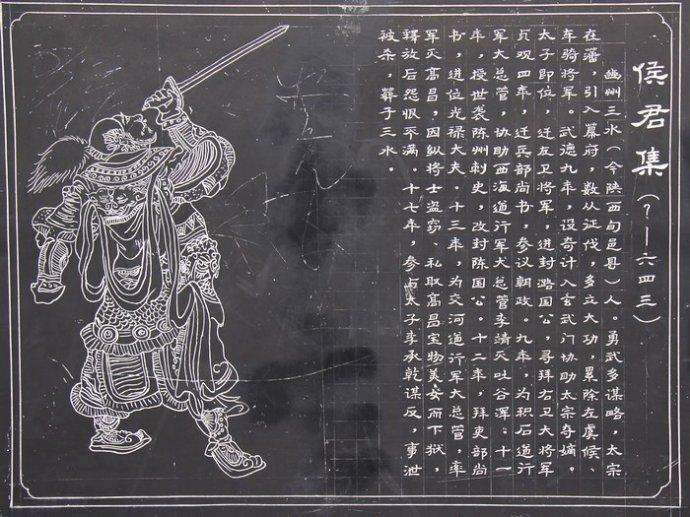 侯君集（？—六四三）
豳州三水（今陕西旬邑县）人。勇武多谋略，太宗
在藩，引入幕府，数从征伐，多立大功，累除左虞候、
车骑将军。武德九年，设奇计入玄武门协助太宗夺嫡。
太子即位，迁左卫将军，进封潞国公，寻拜右卫大将军
贞观四年，迁兵部尚书，参议朝政。九年，为积石道行
军大总管，协助西海道行军大总管李靖灭吐谷浑。十一
年，授世袭陈州刺史，改封陈国公。十二年，拜吏部尚
书，进位光禄大夫。十三年，为交河道行军大总管，率
军灭高昌，因纵将士盗窃、私取高昌宝物美女而下狱，
释放后怨恨不满。十七年，参与太子李承乾谋反，事泄
被杀，葬于三水。